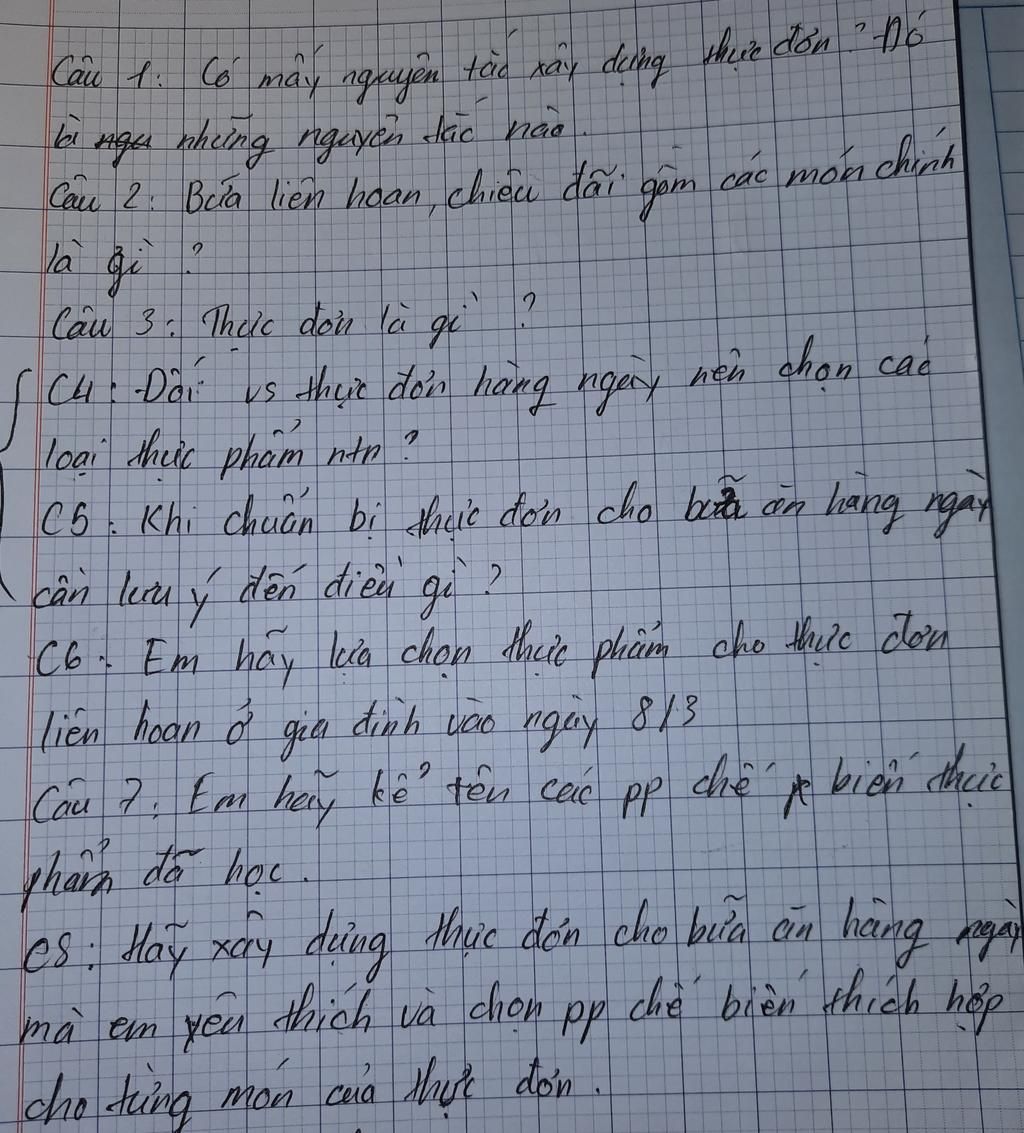 Câu 1: Có mấy nguyên tắc xây dựng thực đơn? Đó
là những nguyên tắc nào.
Câu 2: Bữa liên hoan, chiêu đãi gồm các món chính
là gì?
Câu 3: Thực đơn là gì?
C4: Đối vs thực đơn hàng ngày nên chọn các
loại thực phẩm ntn?
C5: Khi chuẩn bị thực đơn cho bữa ăn hàng ngày
cần lưu ý đến điều gì?
C6: Em hãy lựa chọn thực phẩm cho thực đơn
liên hoan ở gia đình vào ngày 8/3
Câu 7: Em hãy kể tên các pp chế biến thực
phẩm đã học.
C8: Hãy xây dựng thực đơn cho bữa ăn hàng ngày
mà em yêu thích và chọn pp chế biến thích hợp
cho từng món của thực đơn.